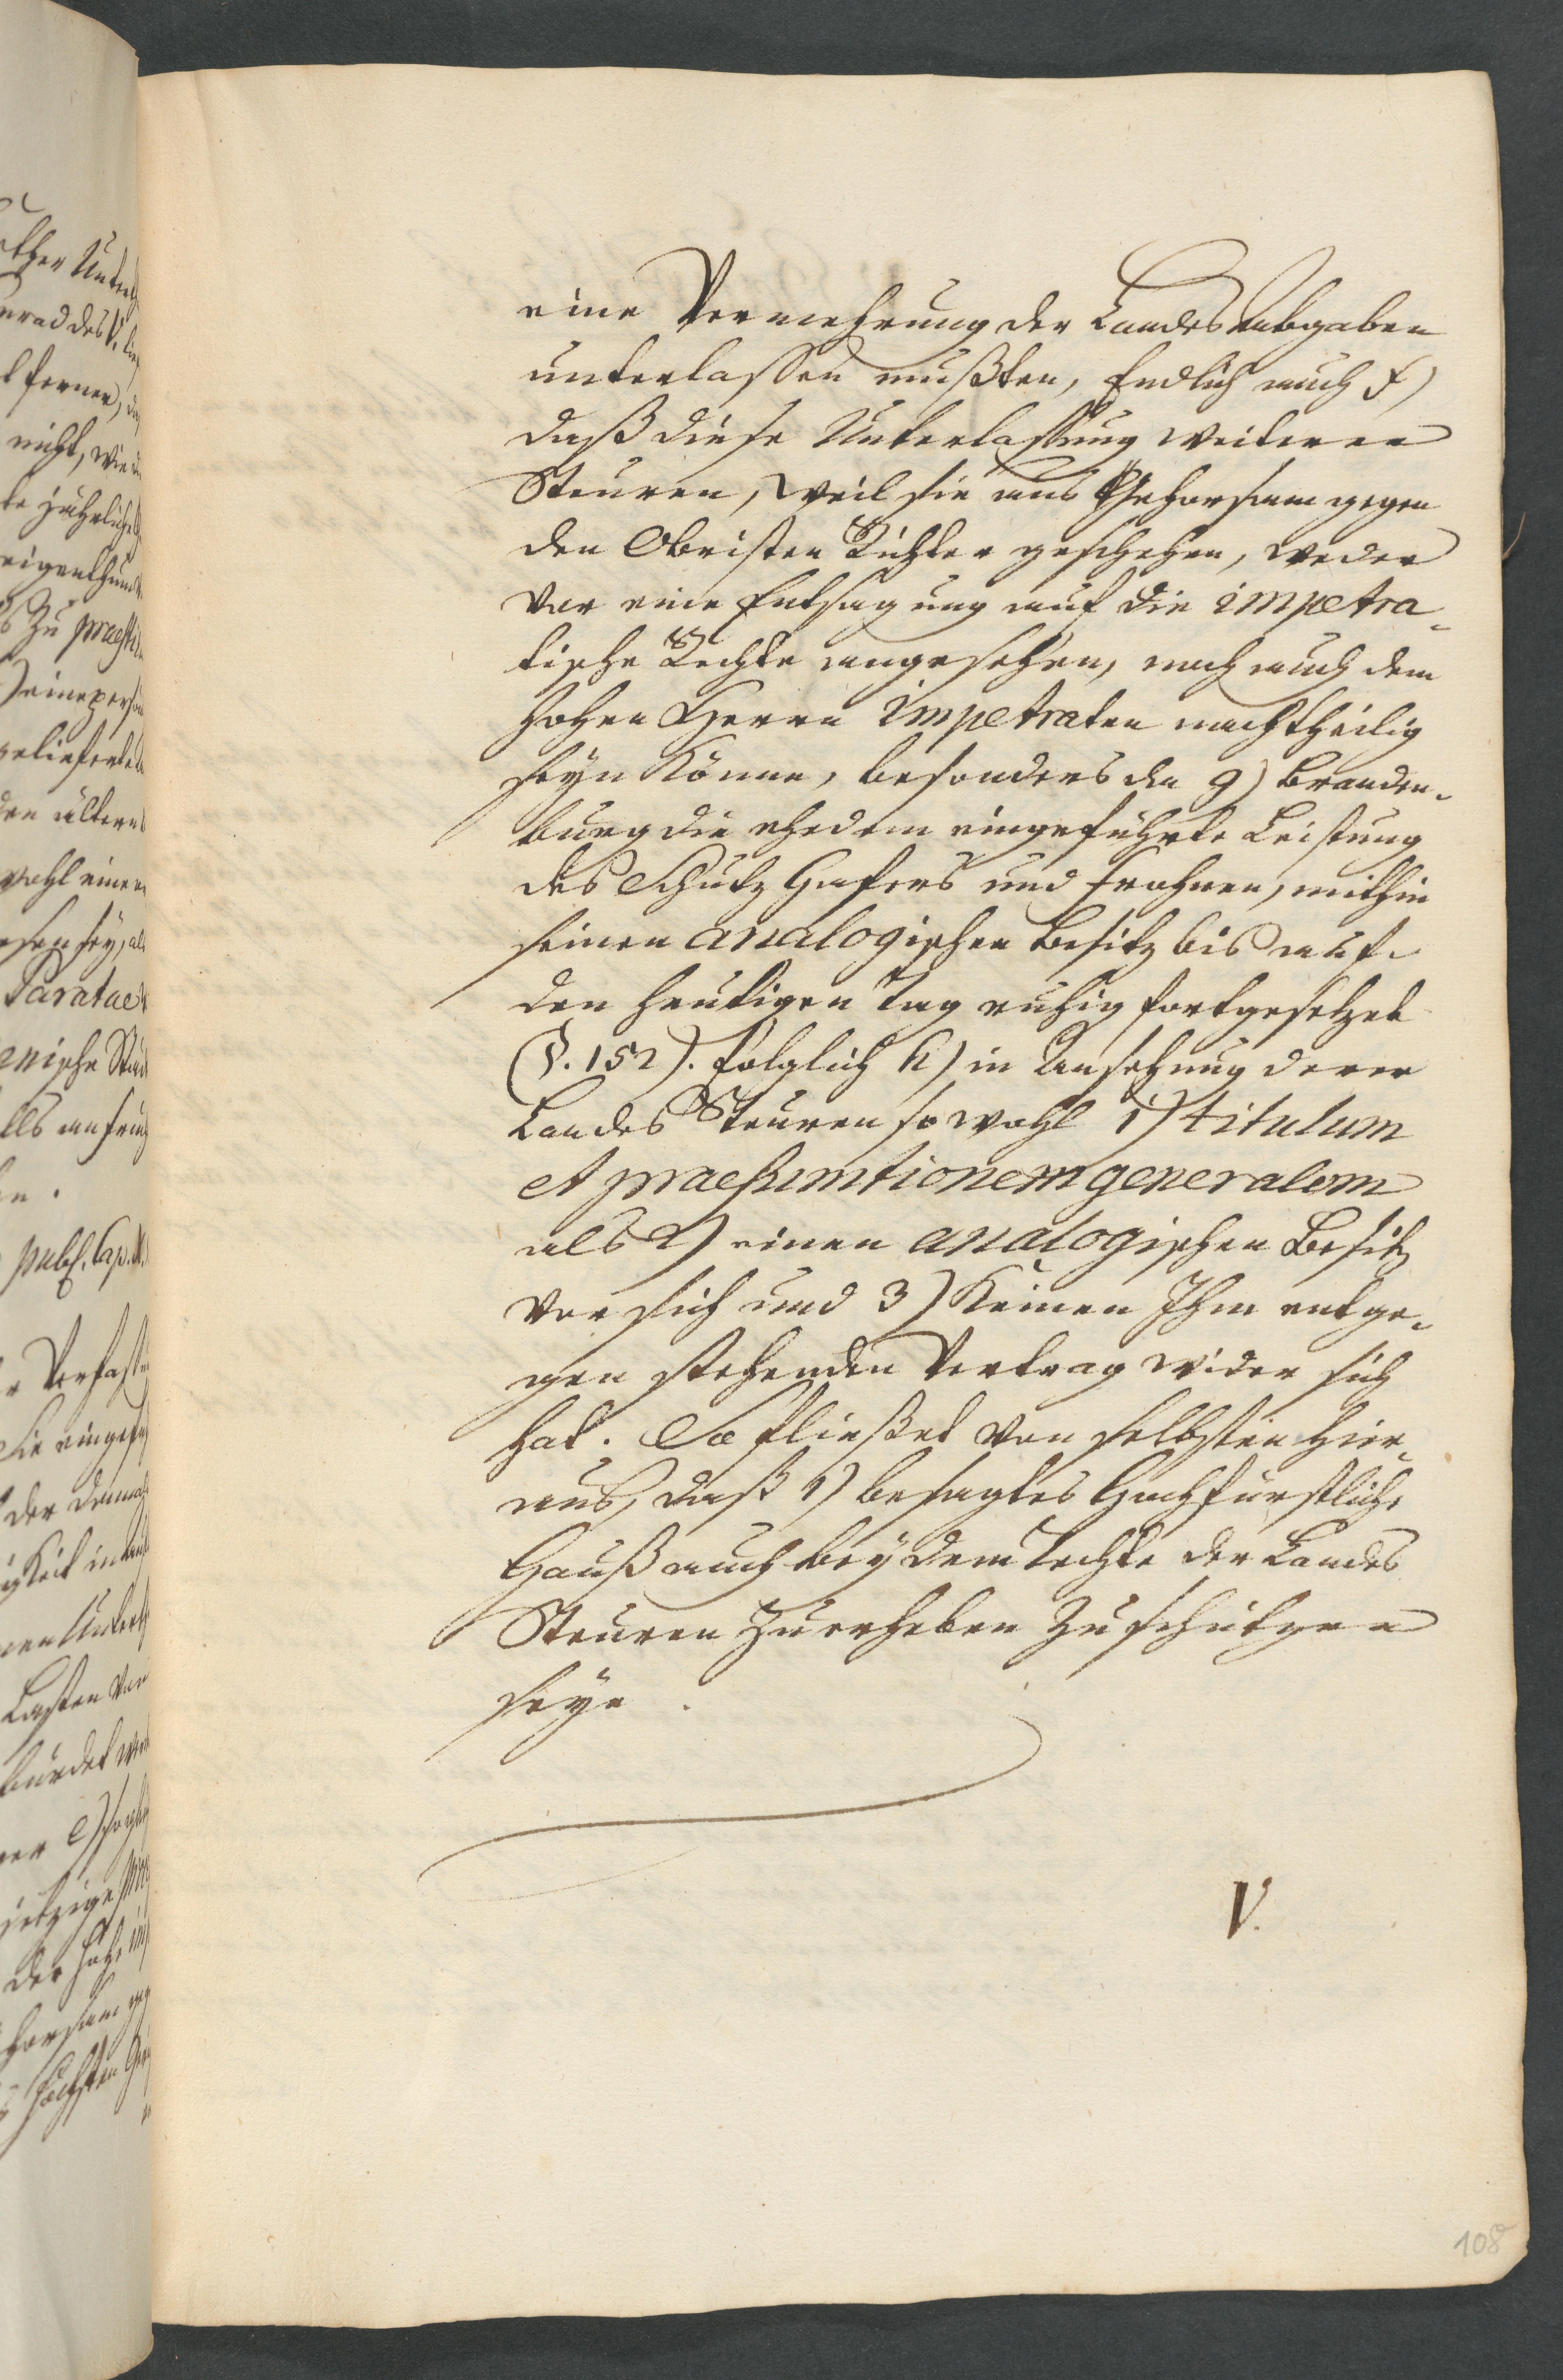 eine Vermehrung der Landes abgaben
unterlassen mußten, Endlich auch f)
daß diese Unterlassung weiterer
Steuren, weil sie aus Gehorsam gegen
den Obristen Richter geschehen, weder
vor eine Entsagung auf die impetra-
tische Rechte angesehen, noch auch dem
hohen Herrn Impetraten nachtheilig
seyn könne, besonders da g) Branden-
burg die ehedem eingeführte Leistung
des Schutz Hafers und Frohnen, mithin
seinen analogischen Besitz bis auf
den heutigen Tag ruhig fortgesetzet
(§. 152). folglich h) in Ansehung derer
Landes Steuren sowohl 1) titulum
et praesumtionem generalem
als 2) einen analogischen Besitz
vor sich und 3) keinen Ihm entge-
gen stehenden Vertrag wider sich
hat. So fließet von selbsten hier-
aus, daß 1) besagtes Hochfürstliche
Hauß auch bey dem Rechte der Landes
Steuren zu erheben zu schützen
seye.
V.
108